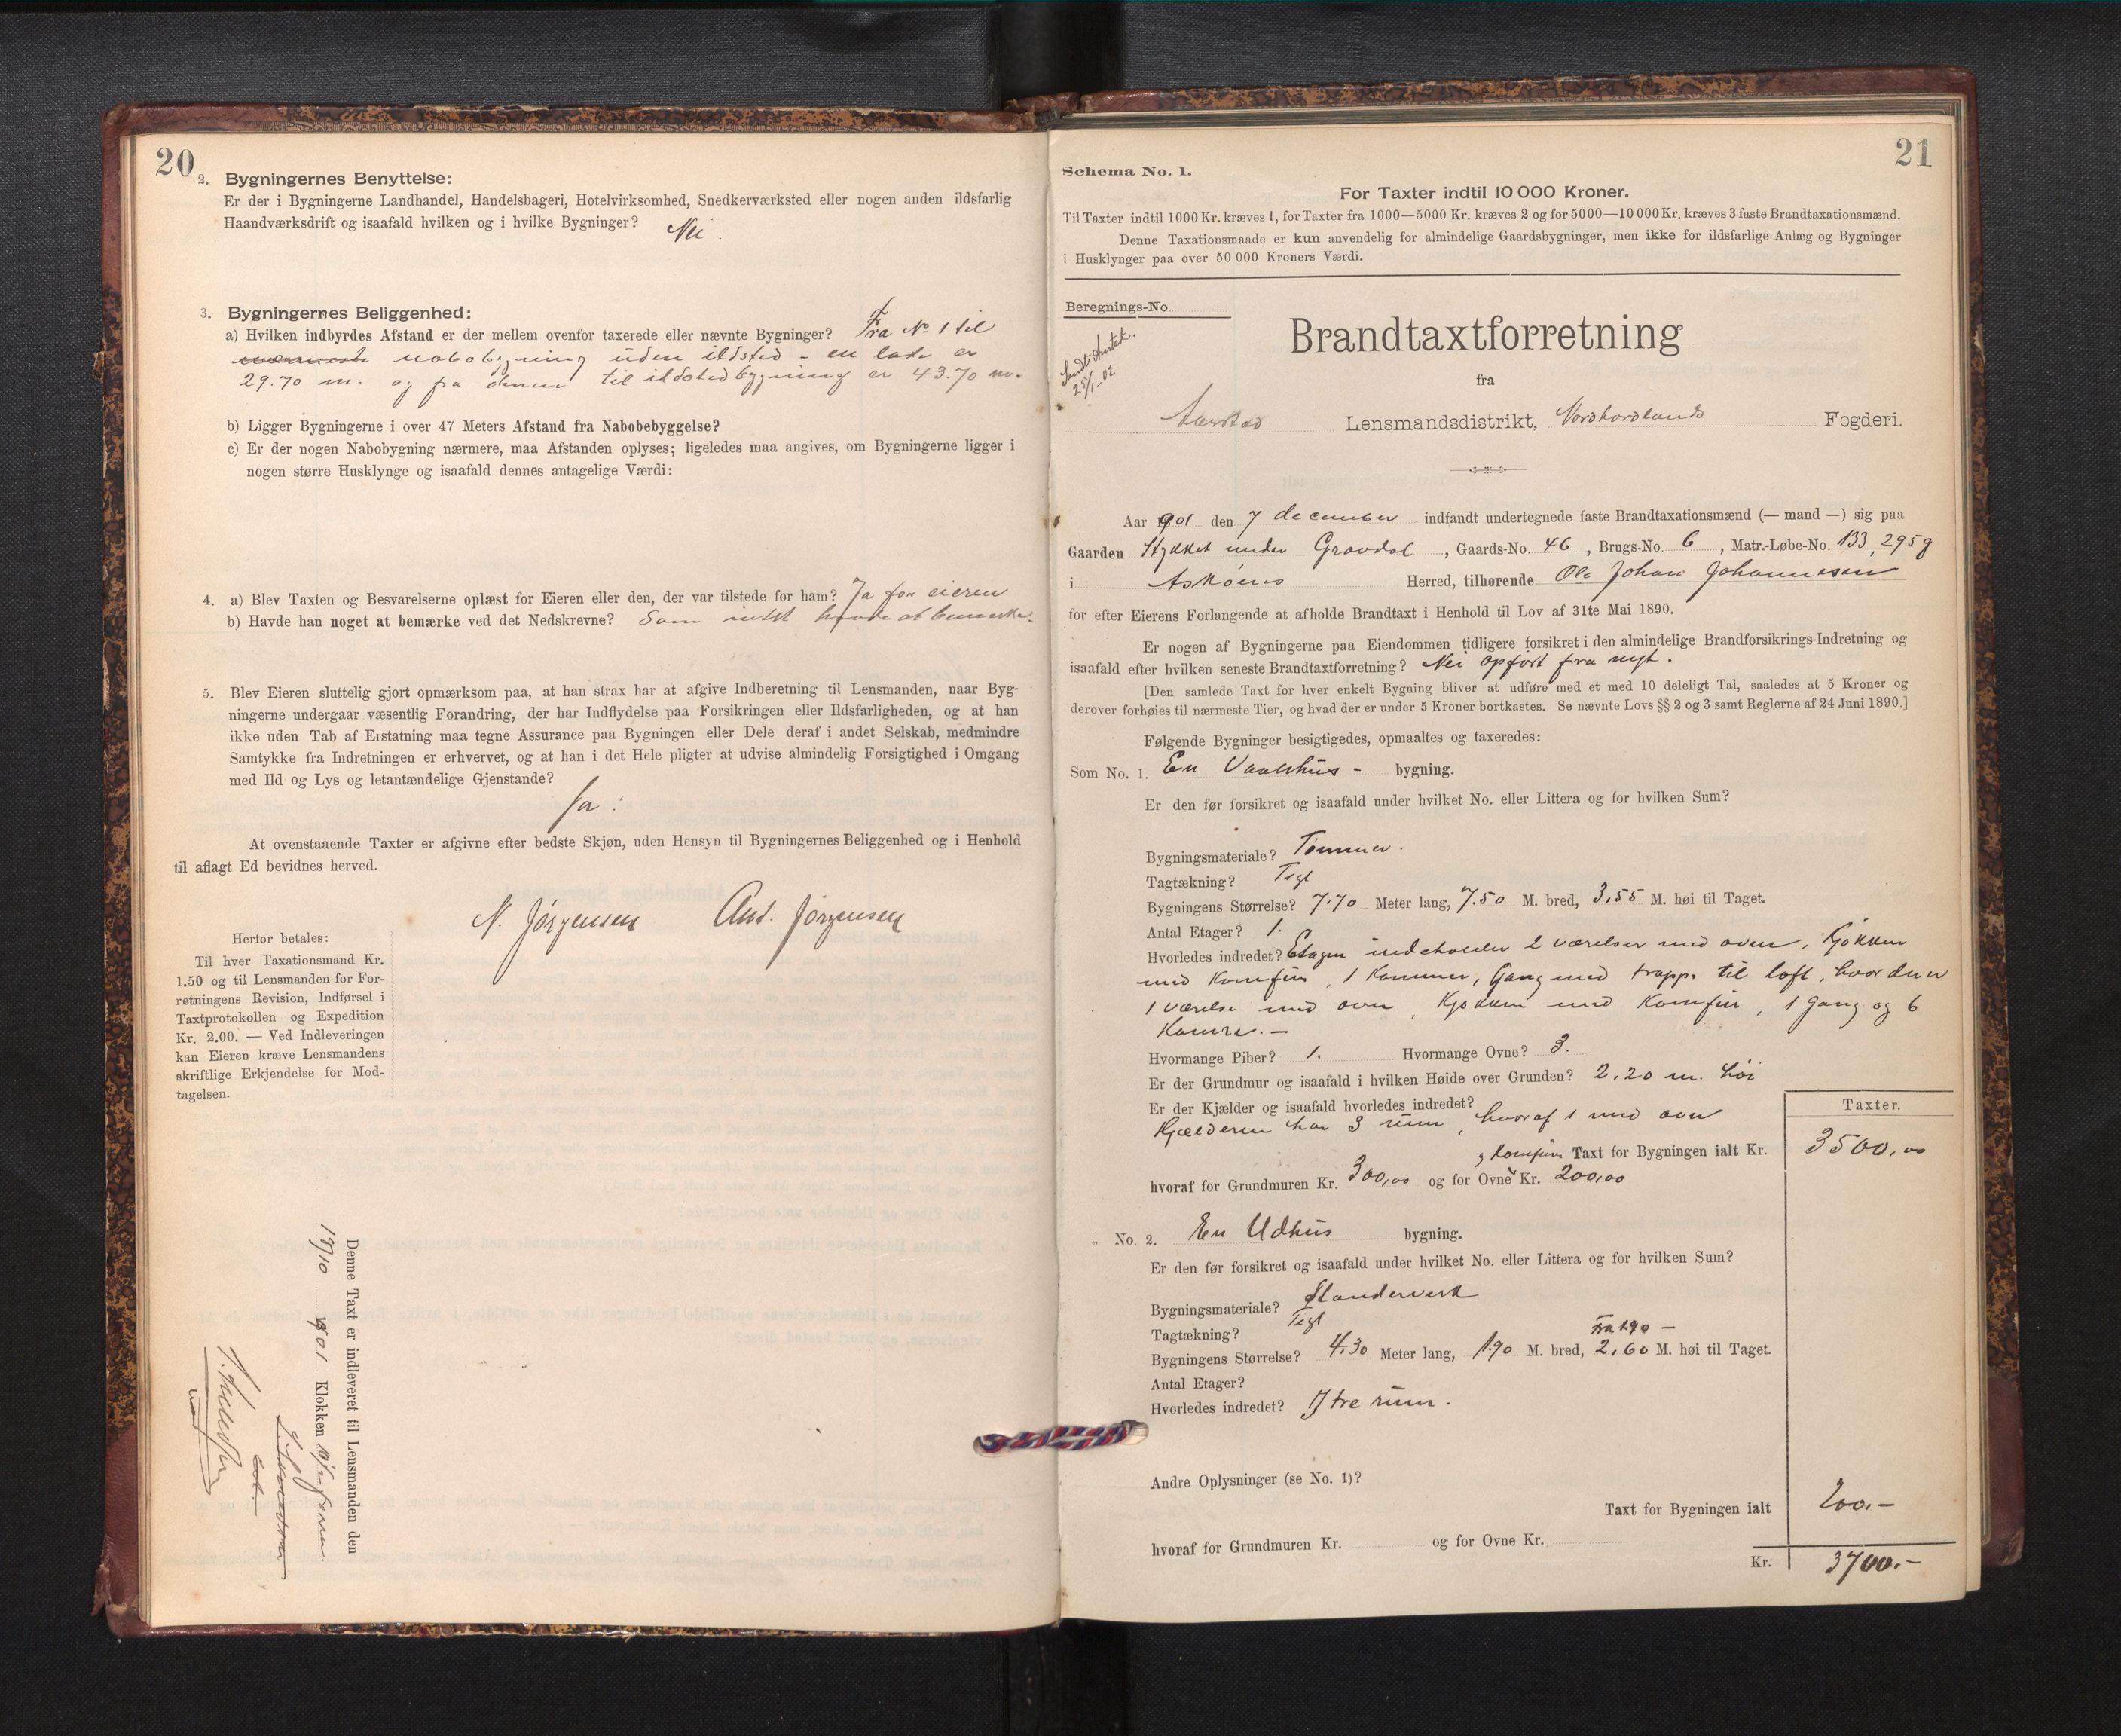 20
2. Bygningernes Benyttelse:
Er der i Bygningerne Landhandel, Handelsbageri, Hotelvirksomhed, Snedkerværksted eller nogen anden ildsfarlig
Haandværksdrift og isaafald hvilken og i hvilke Bygninger? Nei.
3. Bygningernes Beliggenhed:
a) Hvilken indbyrdes Afstand er der mellem ovenfor taxerede eller nævnte Bygninger? Fra No 1 til
nabobygning uden ildsted - en lade er
29.70 m. og fra denne til ildstedbygning er 43.70 m.
b) Ligger Bygningerne i over 47 Meters Afstand fra Nabobebyggelse?
c) Er der nogen Nabobygning nærmere, maa Afstanden oplyses; ligeledes maa angives, om Bygningerne ligger i
nogen større Husklynge og isaafald dennes antagelige Værdi:
4. a) Blev Taxten og Besvarelserne oplæst for Eieren eller den, der var tilstede for ham? Ja for eieren
b) Havde han noget at bemærke ved det Nedskrevne? Som intet havde at bemerke.
5. Blev Eieren sluttelig gjort opmærksom paa, at han strax har at afgive Indberetning til Lensmanden, naar Byg-
ningerne undergaar væsentlig Forandring, der har Indflydelse paa Forsikringen eller Ildsfarligheden, og at han
ikke uden Tab af Erstatning maa tegne Assurance paa Bygningen eller Dele deraf i andet Selskab, medmindre
Samtykke fra Indretningen er erhvervet, og at han i det Hele pligter at udvise almindelig Forsigtighed i Omgang
med Ild og Lys og letantændelige Gjenstande?
Ja!
At ovenstaaende Taxter er afgivne efter bedste Skjøn, uden Hensyn til Bygningernes Beliggenhed og i Henhold
til aflagt Ed bevidnes herved.
N. Jørgensen And. Jørgensen
Herfor betales:
Til hver Taxationsmand Kr.
1.50 og til Lensmanden for For-
retningens Revision, Indførsel i
Taxtprotokollen og Expedition
Kr. 2.00. — Ved Indleveringen
kan Eieren kræve Lensmandens
skriftlige Erkjendelse for Mod-
tagelsen.
Denne Taxt er indleveret til Lensmanden den
1901 Klokken
21
Schema No. 1.
For Taxter indtil 10 000 Kroner.
Til Taxter indtil 1000 Kr. kræves 1, for Taxter fra 1000—5000 Kr. kræves 2 og for 5000—10 000 Kr. kræves 3 faste Brandtaxationsmænd.
Denne Taxationsmaade er kun anvendelig for almindelige Gaardsbygninger, men ikke for ildsfarlige Anlæg og Bygninger
i Husklynger paa over 50 000 Kroners Værdi.
Beregnings-No.
Sendt
25/1-02
Brandtaxtforretning
fra
Lensmandsdistrikt, Nordhordlands Fogderi.
Aar 1901 den 7 december indfandt undertegnede faste Brandtaxationsmænd (— mand —) sig paa
Gaarden Stykket under Gravdal, Gaards-No. 46, Brugs-No. 6, Matr.-Løbe-No. 133, 295g
i Askøens Herred, tilhørende Ole Johan Johannesen
for efter Eierens Forlangende at afholde Brandtaxt i Henhold til Lov af 31te Mai 1890.
Er nogen af Bygningerne paa Eiendommen tidligere forsikret i den almindelige Brandforsikrings-Indretning og
isaafald efter hvilken seneste Brandtaxtforretning? Nei opført fra nyt.
[Den samlede Taxt for hver enkelt Bygning bliver at udføre med et med 10 deleligt Tal, saaledes at 5 Kroner og
derover forhøies til nærmeste Tier, og hvad der er under 5 Kroner bortkastes. Se nævnte Lovs §§ 2 og 3 samt Reglerne af 24 Juni 1890.]
Følgende Bygninger besigtigedes, opmaaltes og taxeredes:
Som No. 1. En Vaalshus- bygning.
Er den før forsikret og isaafald under hvilket No. eller Littera og for hvilken Sum?
Bygningsmateriale? Tømmer.
Tagtækning? Tegl
Bygningens Størrelse? 7.70 Meter lang, 7.50 M. bred, 3,55 M. høi til Taget.
Antal Etager? 1.
Hvorledes indredet? Etagen indeholder 2 værelser med oven, Kjøkken
med Komfur, 1 Kammer, Gang med trappe til loft, hvor der er
1 værelse med oven, Kjøkken med Komfur, 1 gang og 6
Kamre. —
Hvormange Piber? 1. Hvormange Ovne? 3.
Er der Grundmur og isaafald i hvilken Høide over Grunden? 2,20 m. høi
Er der Kjælder og isaafald hvorledes indredet?
Kjælderen har 3 rum, hvoraf 1 med oven
Taxter.
og Komfur Taxt for Bygningen ialt Kr. 3500,00
hvoraf for Grundmuren Kr. 300,00 og for Ovne Kr. 200,00
„ No. 2. En Udhus bygning.
Er den før forsikret og isaafald under hvilket No. eller Littera og for hvilken Sum?
Bygningsmateriale? Standerverk
Tagtækning? Tegl
Fra 1.90 —
Bygningens Størrelse? 4.30 Meter lang, 1.90 M. bred, 2,60 M. høi til Taget.
Antal Etager?
Hvorledes indredet? I tre rum.
Andre Oplysninger (se No. 1)?
Taxt for Bygningen ialt 200.-
hvoraf for Grundmuren Kr. og for Ovne Kr.
Kr. 3700.-